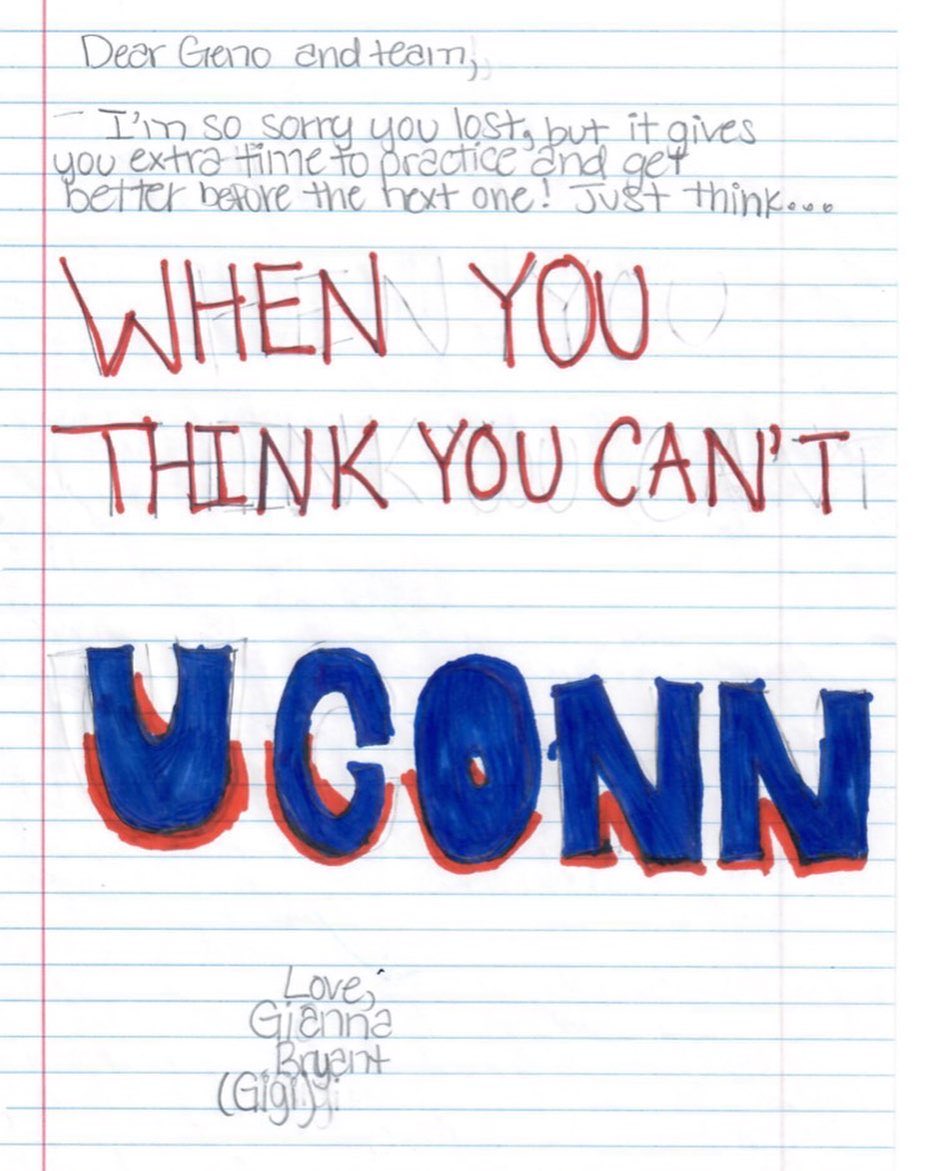 Dear Geno and team,
I'm so sorry you lost, but it gives
you extra time to practice and get
better before the next one! Just think...
WHEN YOU
THINK YOU CAN'T
UCONN
Love,
Gianna
Bryant
(Gigi)